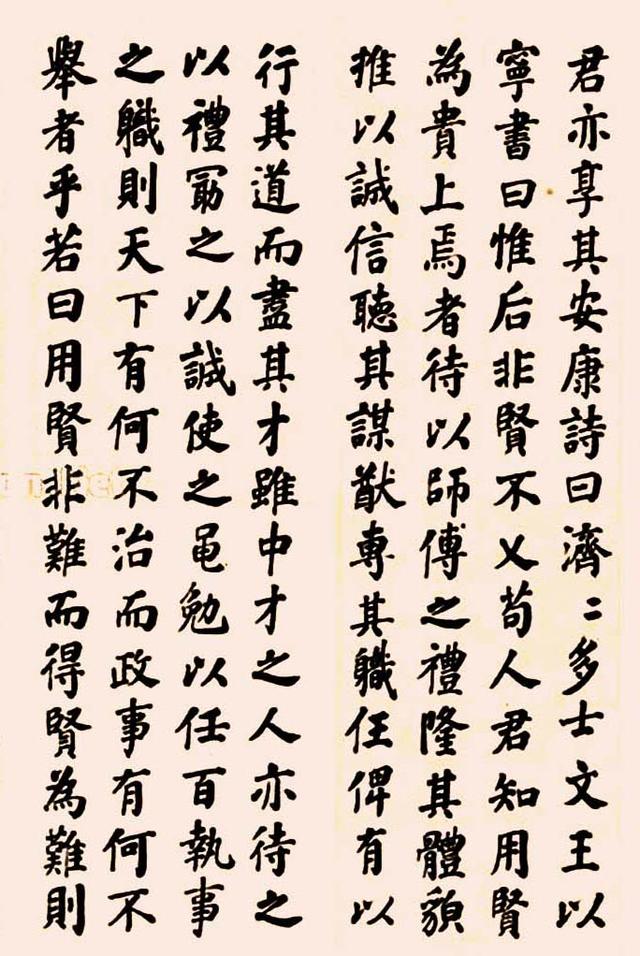 君亦享其安康詩曰濟〻多士文王以
寧書曰惟后非賢不乂苟人君知用賢
為貴上焉者待以師傅之禮隆其體貌
推以誠信聽其謀猷專其職任俾有以
行其道而盡其才雖中才之人亦待之
以禮勖之以誠使之黽勉以任百執事
之職則天下有何不治而政事有何不
舉者乎若曰用賢非難而得賢為難則